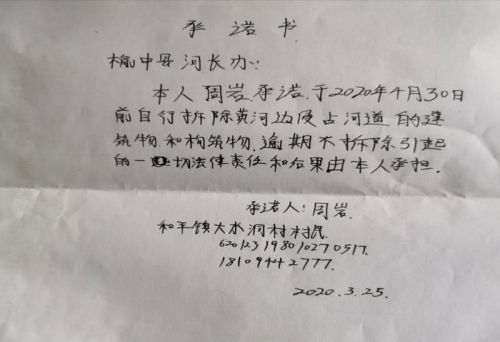 承诺书
榆中县河长办:
本人周岩承诺于2020年4月30日
前自行拆除黄河边侵占河道的建
筑物和构筑物,逾期不拆除引起
的一切法律责任和后果由本人承担.
承诺人:周岩.
和平镇大水洞村村民
620123198010270517.
18109442777.
2020.3.25.